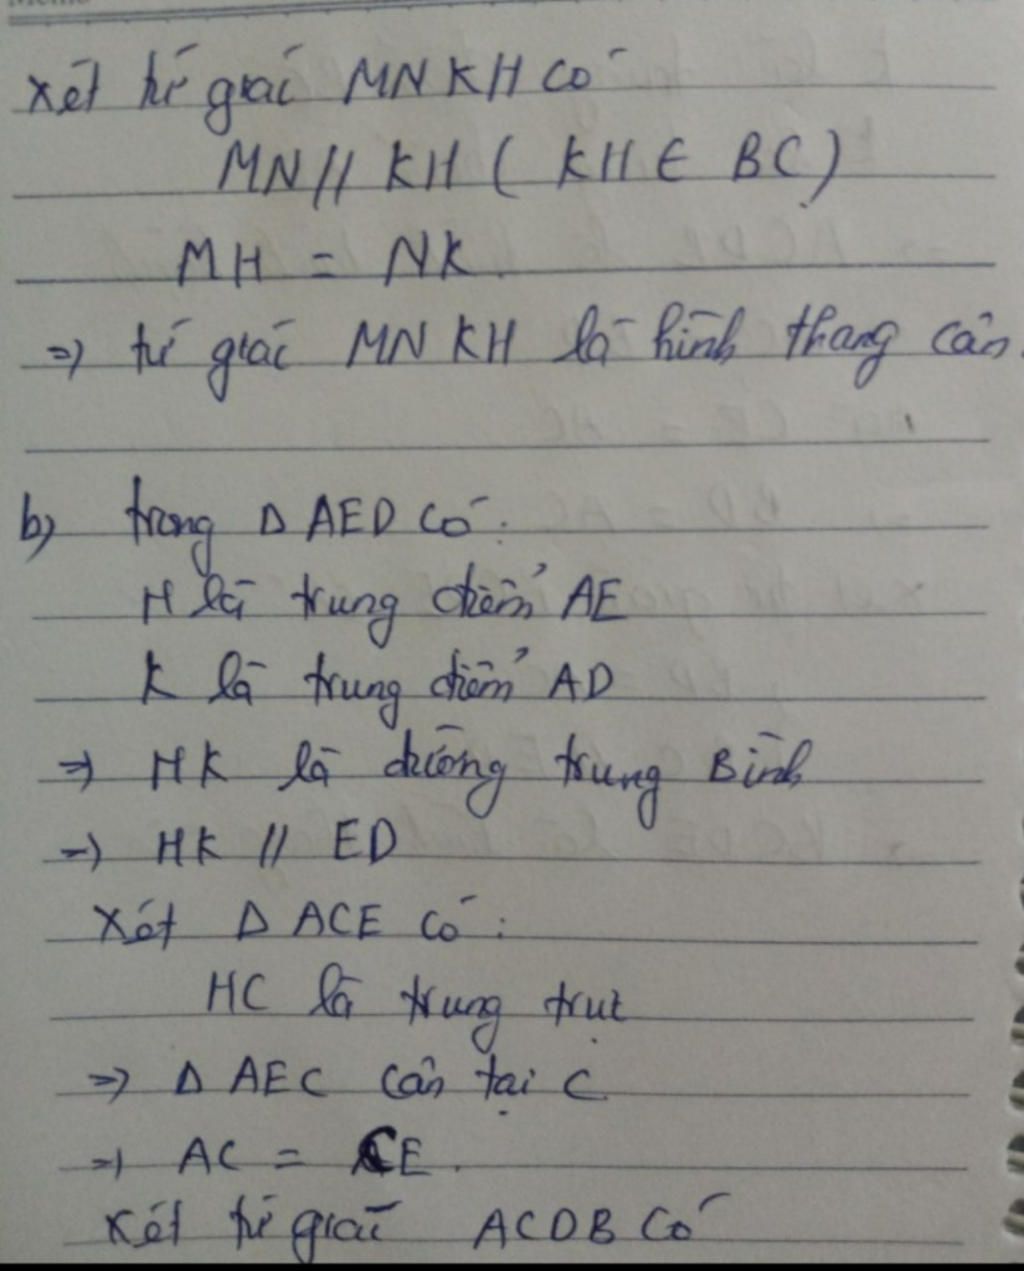 xét tứ giác MNKH có
MN // KH ( KH ∈ BC)
MH = NK
=> tứ giác MNKH là hình thang cân.
b) trong Δ AED có:
H là trung điểm AE
K là trung điểm AD
=> HK là đường trung Bình
=> HK // ED
Xét Δ ACE có:
HC là trung trực
=> Δ AEC cân tại C
=> AC = CE.
Xét tứ giác ACDB có